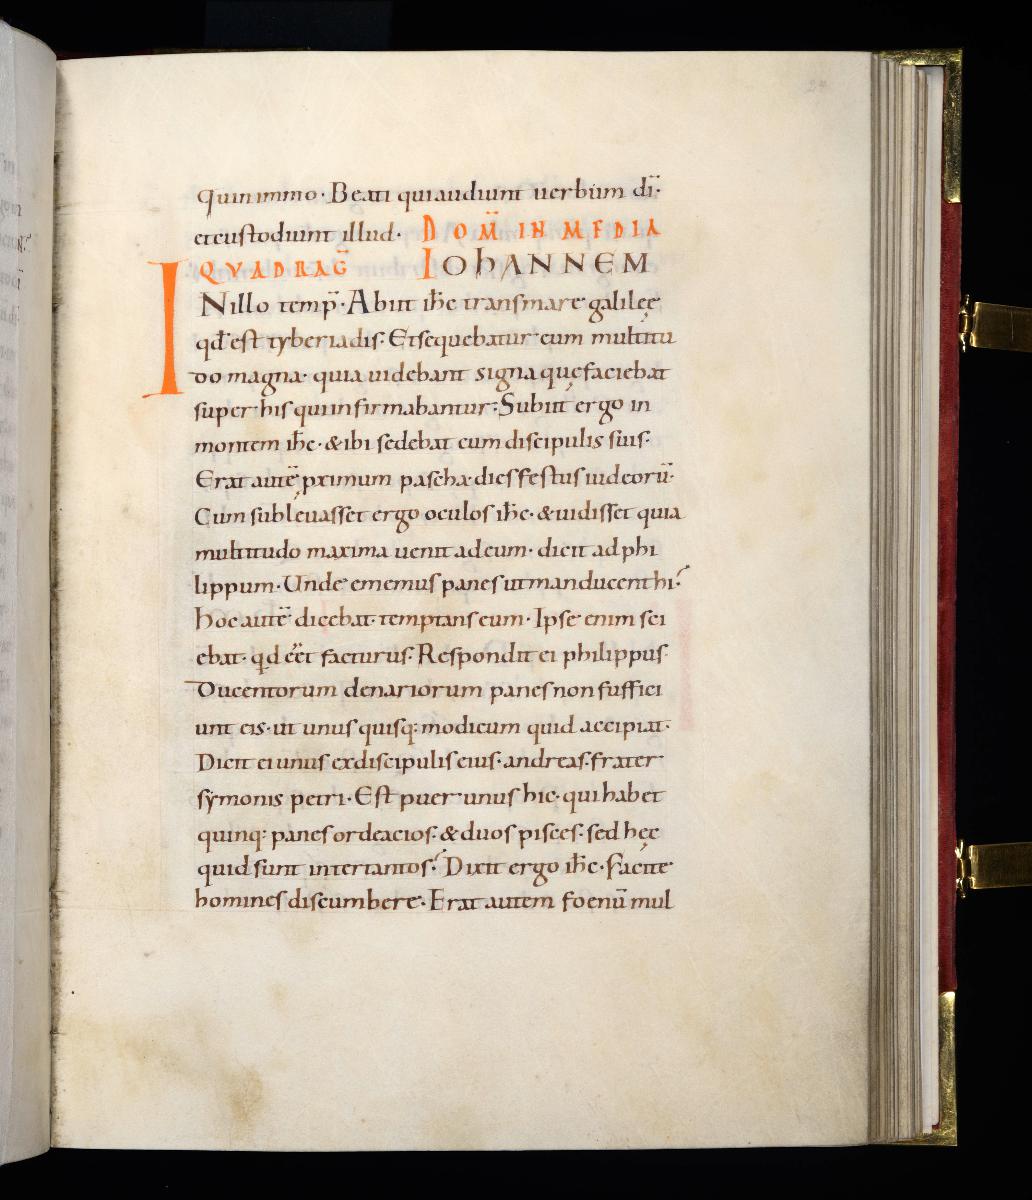 quin immo· Beati qui audiunt uerbum dī·
et custodiunt illud· DOM̄ IN MEDIA
QVADRAḠ IOHANNEM
INillo temp̄· Abiit ih̄c trans mare galileę
qd̄ est tyberiadis· Et sequebatur eum multitu
do magna· quia uidebant signa quę faciebat
super his qui infirmabantur· Subiit ergo in
montem ih̄c· & ibi sedebat cum discipulis suis·
Erat autē proximum pascha· dies festus iudeorū·
Cum subleuasset ergo oculos ih̄c· & uidisset quia
multitudo maxima uenit ad eum· dicit ad phi
lippum· Unde ememus panes ut manducent hi?
hoc autē dicebat temptans eum· Ipse enim sci
ebat· qd ēet facturus· Respondit ei philippus·
Ducentorum denariorum panes non suffici
unt eis· ut unus quisq: modicum quid accipiat·
Dicit ei unus ex discipulis eius· andreas frater
symonis petri· Est puer unus hic· qui habet
quinq: panes ordeacios· & duos pisces· sed hęc
quid sunt inter tantos? Dixit ergo ih̄c· facite
homines discumbere· Erat autem foenū mul